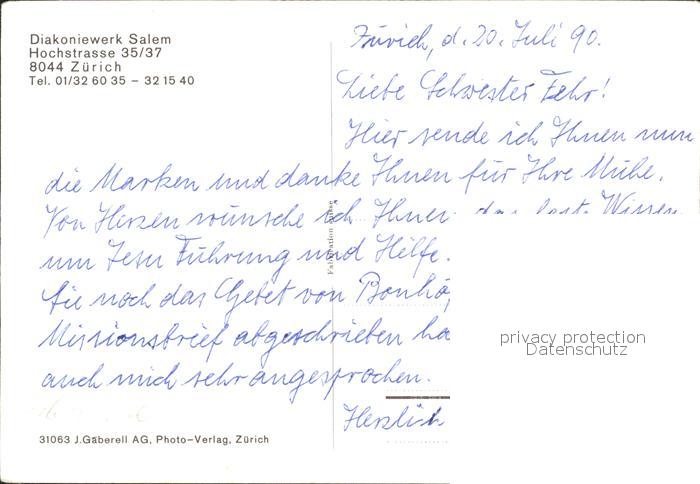 Diakoniewerk Salem
Hochstrasse 35/37
8044 Zürich
Tel. 01/32 60 35 – 32 15 40
Zürich, d. 20. Juli 90.
Liebe Schwester Fehr!
Hier sende ich Ihnen nun
die Marken und danke Ihnen für Ihre Mühe.
Von Herzen wünsche ich Ihnen das Wissen
um Jesu Führung und Hilfe.
Sie noch das Gebet von Bonhö
Missionsbrief abgeschrieben ha
auch mich sehr angesprochen.
Herzlich
31063 J.Gaberell AG, Photo-Verlag, Zürich
privacy protection
Datenschutz